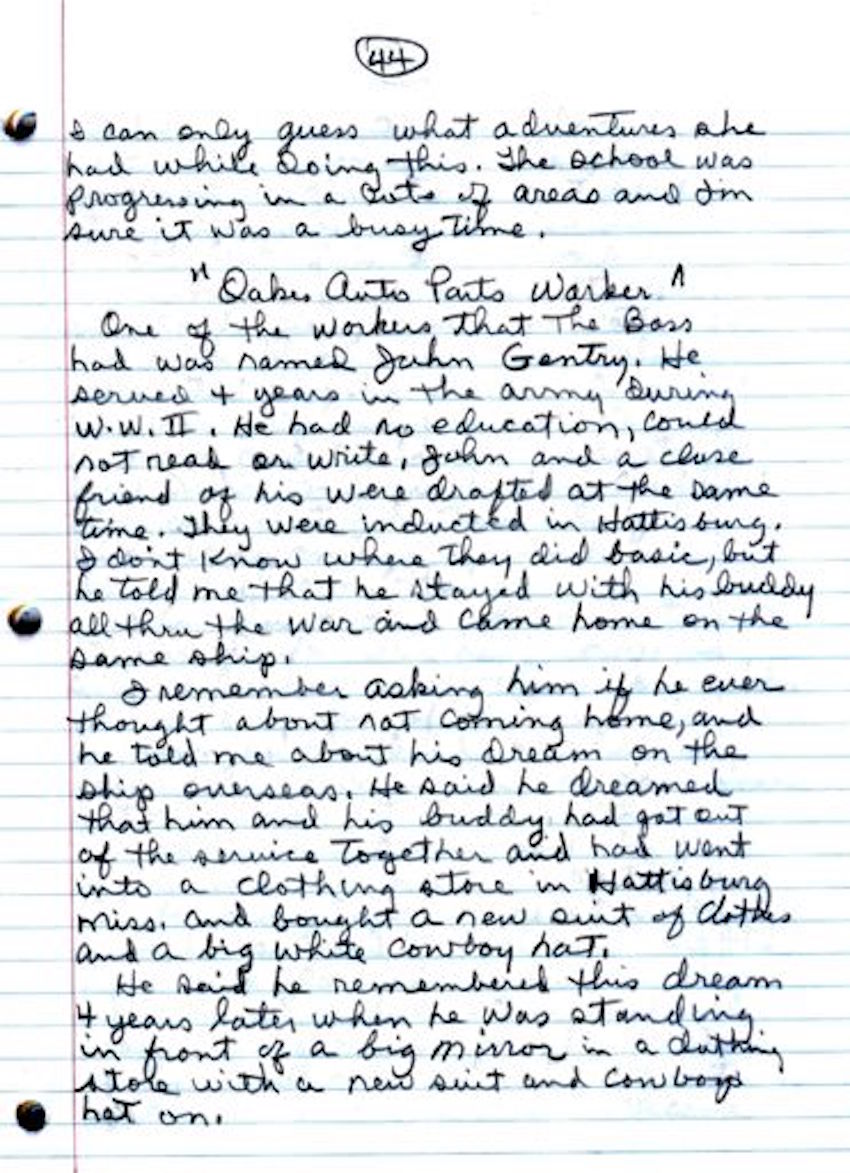 44
I can only guess what adventures she
had while doing this. The school was
progressing in a lots of areas and I'm
sure it was a busy time.
"Oakes Auto Parts Worker"
One of the workers that The Boss
had was named John Gentry. He
served 4 years in the army during
W.W.II. He had no education, could
not read or write, John and a close
friend of his were drafted at the same
time. They were inducted in Hattisburg.
I don't know where they did basic, but
he told me that he stayed with his buddy
all thru the war and came home on the
same ship.
I remember asking him if he ever
thought about not coming home, and
he told me about his dream on the
ship overseas. He said he dreamed
that him and his buddy had got out
of the service together and had went
into a clothing store in Hattisburg
Miss. and bought a new suit of clothes
and a big white cowboy hat.
He said he remembered this dream
4 years later when he was standing
in front of a big mirror in a clothing
store with a new suit and cowboys
hat on.